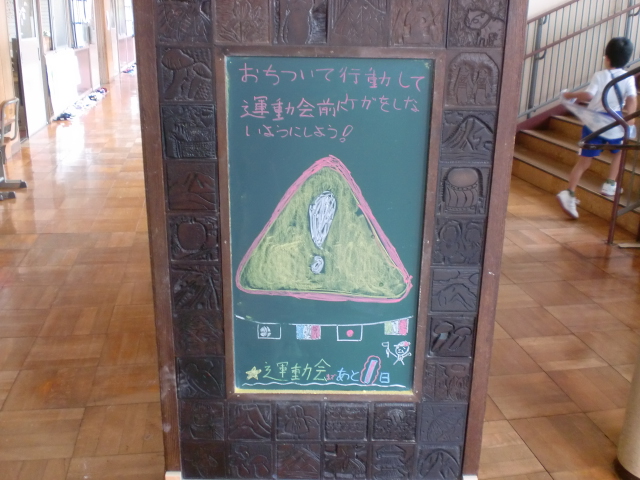 おちついて行動して
運動会前にけがをしな
いようにしよう!
!
☆運動会まであと1日